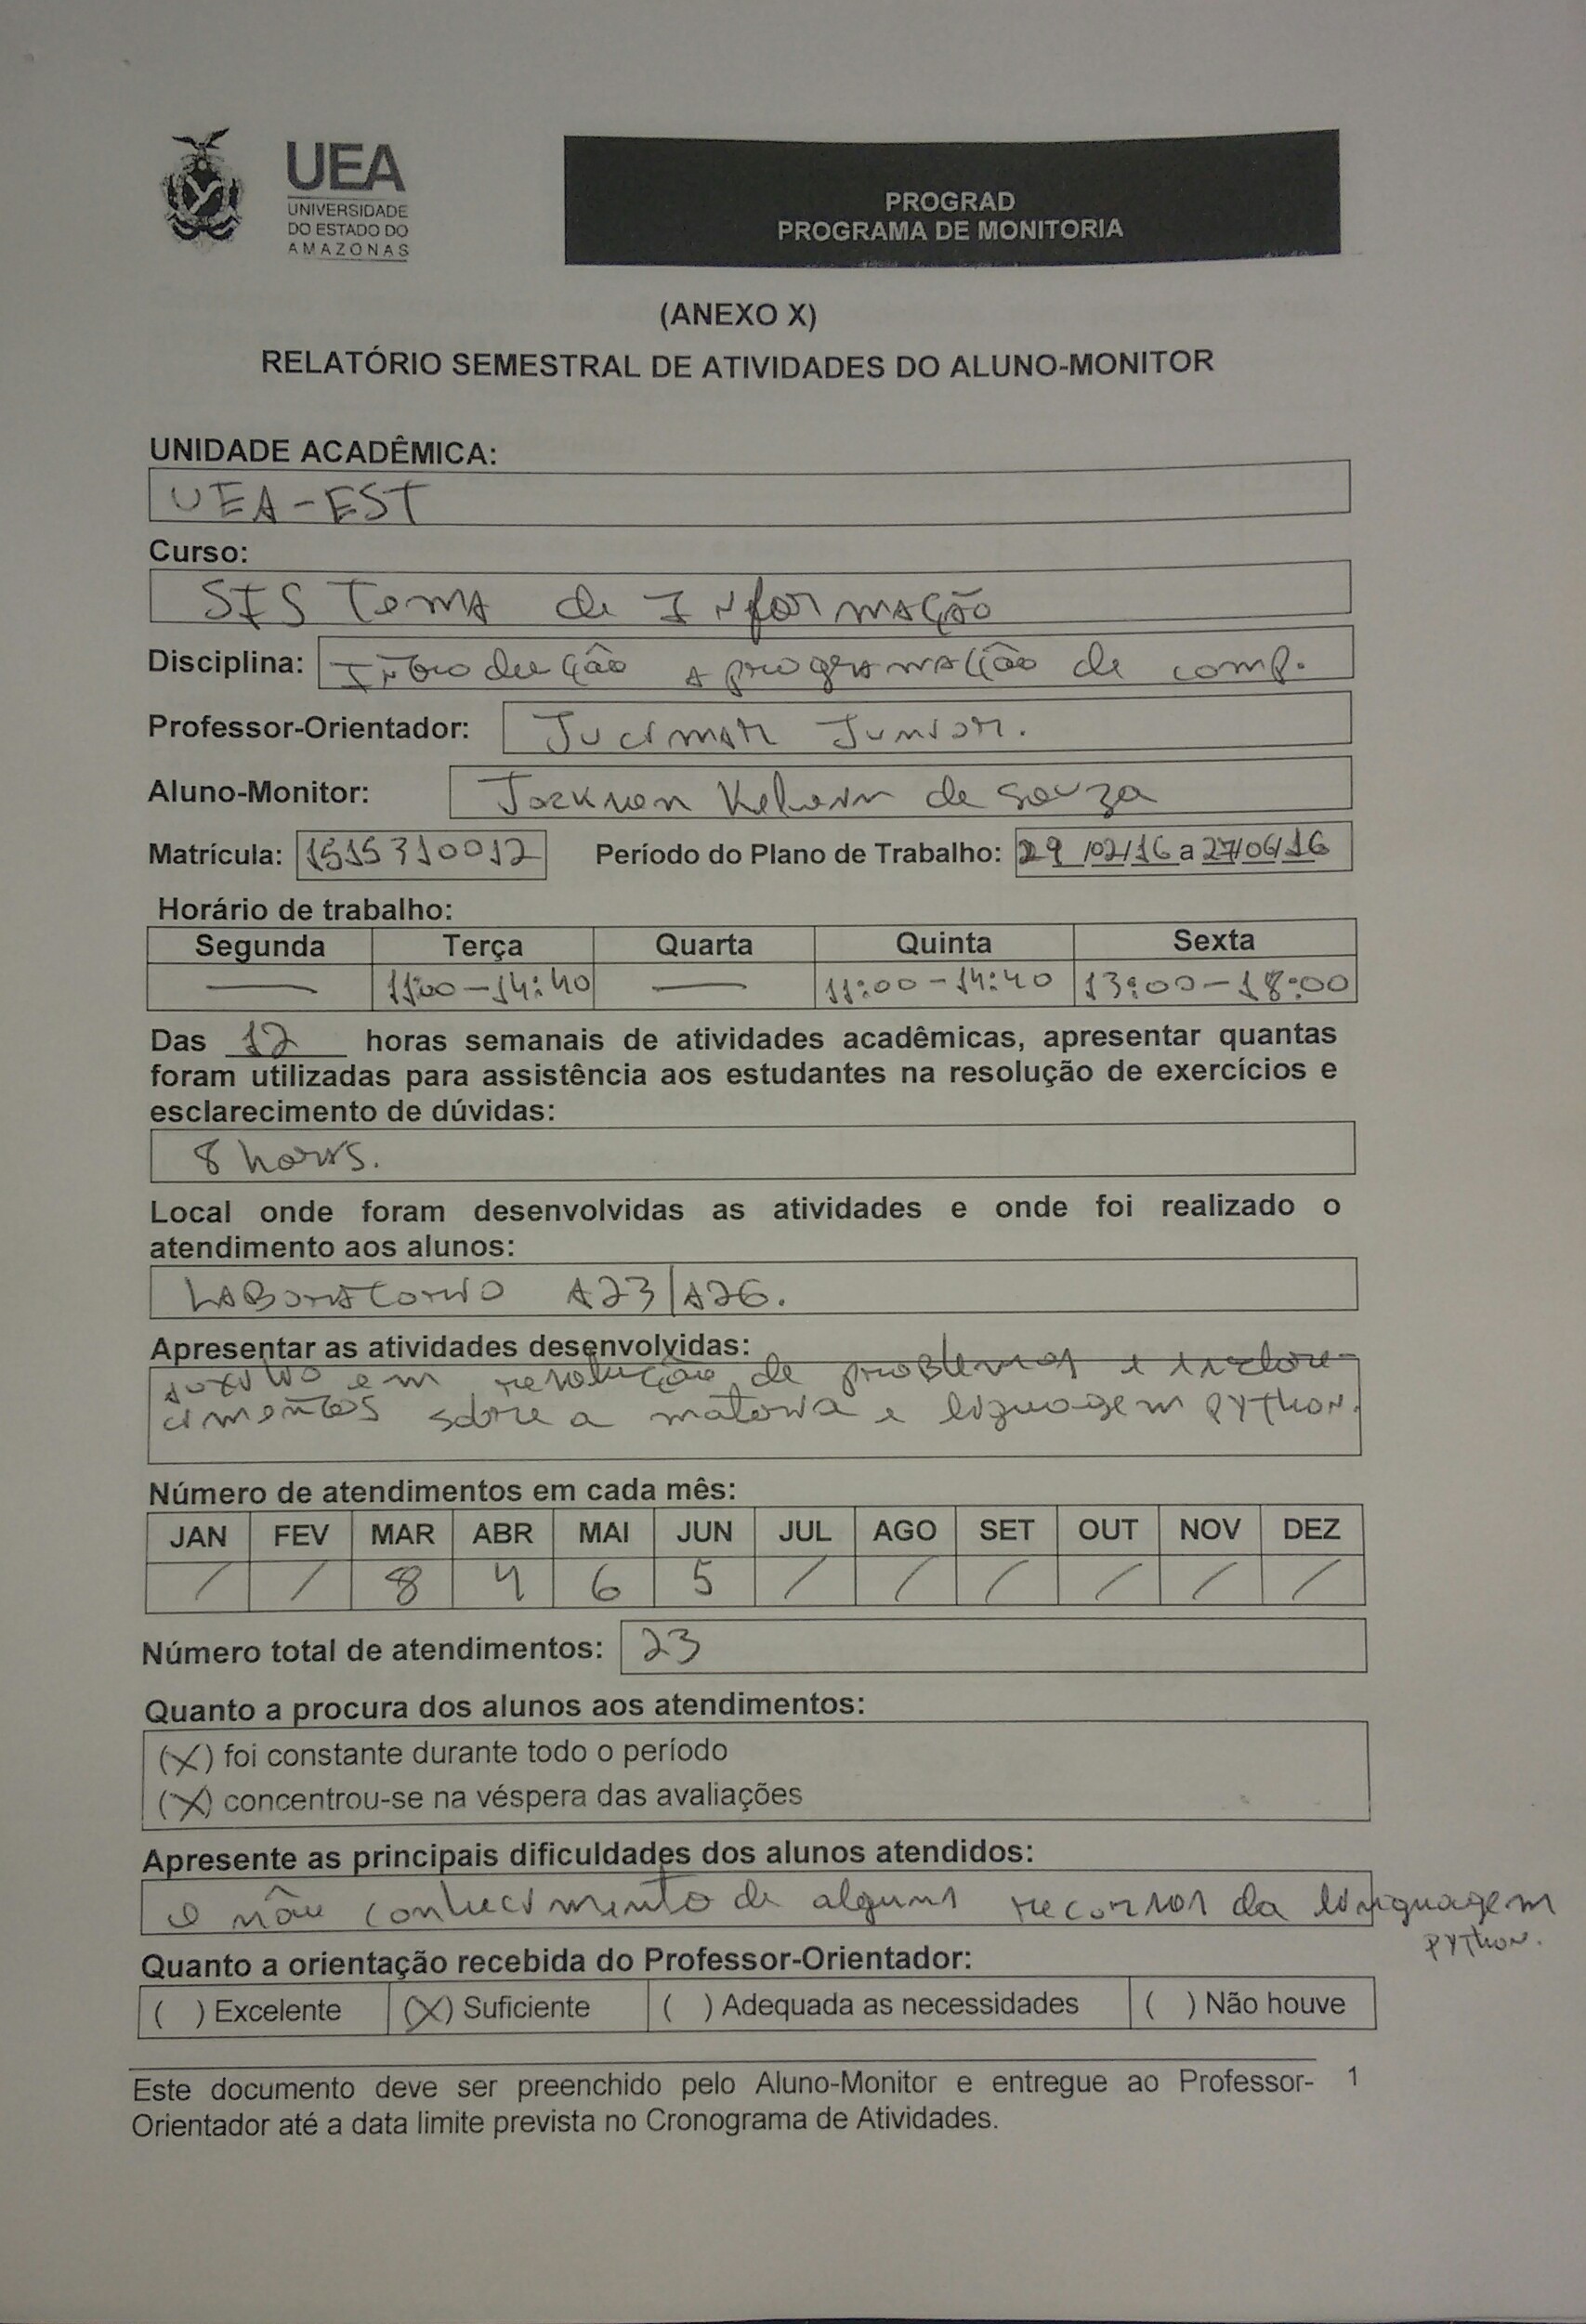 UEA
UNIVERSIDADE
DO ESTADO DO
AMAZONAS
PROGRAD
PROGRAMA DE MONITORIA
(ANEXO X)
RELATÓRIO SEMESTRAL DE ATIVIDADES DO ALUNO-MONITOR
UNIDADE ACADÊMICA:
UEA-EST
Curso:
SISTema de Informação
Disciplina: Introdução a programação de comp.
Professor-Orientador: Jucimar Junior.
Aluno-Monitor: de Souza
Matrícula: 1515310012 Período do Plano de Trabalho: 29/02/16 a 27/06/16
Horário de trabalho:
Segunda Terça Quarta Quinta Sexta
— 11:00-14:40 — 11:00-14:40 13:00-18:00
Das 12 horas semanais de atividades acadêmicas, apresentar quantas
foram utilizadas para assistência aos estudantes na resolução de exercícios e
esclarecimento de dúvidas:
8 horas.
Local onde foram desenvolvidas as atividades e onde foi realizado o
atendimento aos alunos:
LABORATORIO A23/A26.
Apresentar as atividades desenvolvidas:
auxilio em resolução de problemas e
cimentos sobre a materia e linguagem PYTHON.
Número de atendimentos em cada mês:
JAN FEV MAR ABR MAI JUN JUL AGO SET OUT NOV DEZ
/ / 8 4 6 5 / / / / / /
Número total de atendimentos: 23
Quanto a procura dos alunos aos atendimentos:
(X) foi constante durante todo o período
(X) concentrou-se na véspera das avaliações
Apresente as principais dificuldades dos alunos atendidos:
O não conhecimento de alguns recursos da linguagem
PYTHON.
Quanto a orientação recebida do Professor-Orientador:
( ) Excelente (X) Suficiente ( ) Adequada as necessidades ( ) Não houve
Este documento deve ser preenchido pelo Aluno-Monitor e entregue ao Professor- 1
Orientador até a data limite prevista no Cronograma de Atividades.